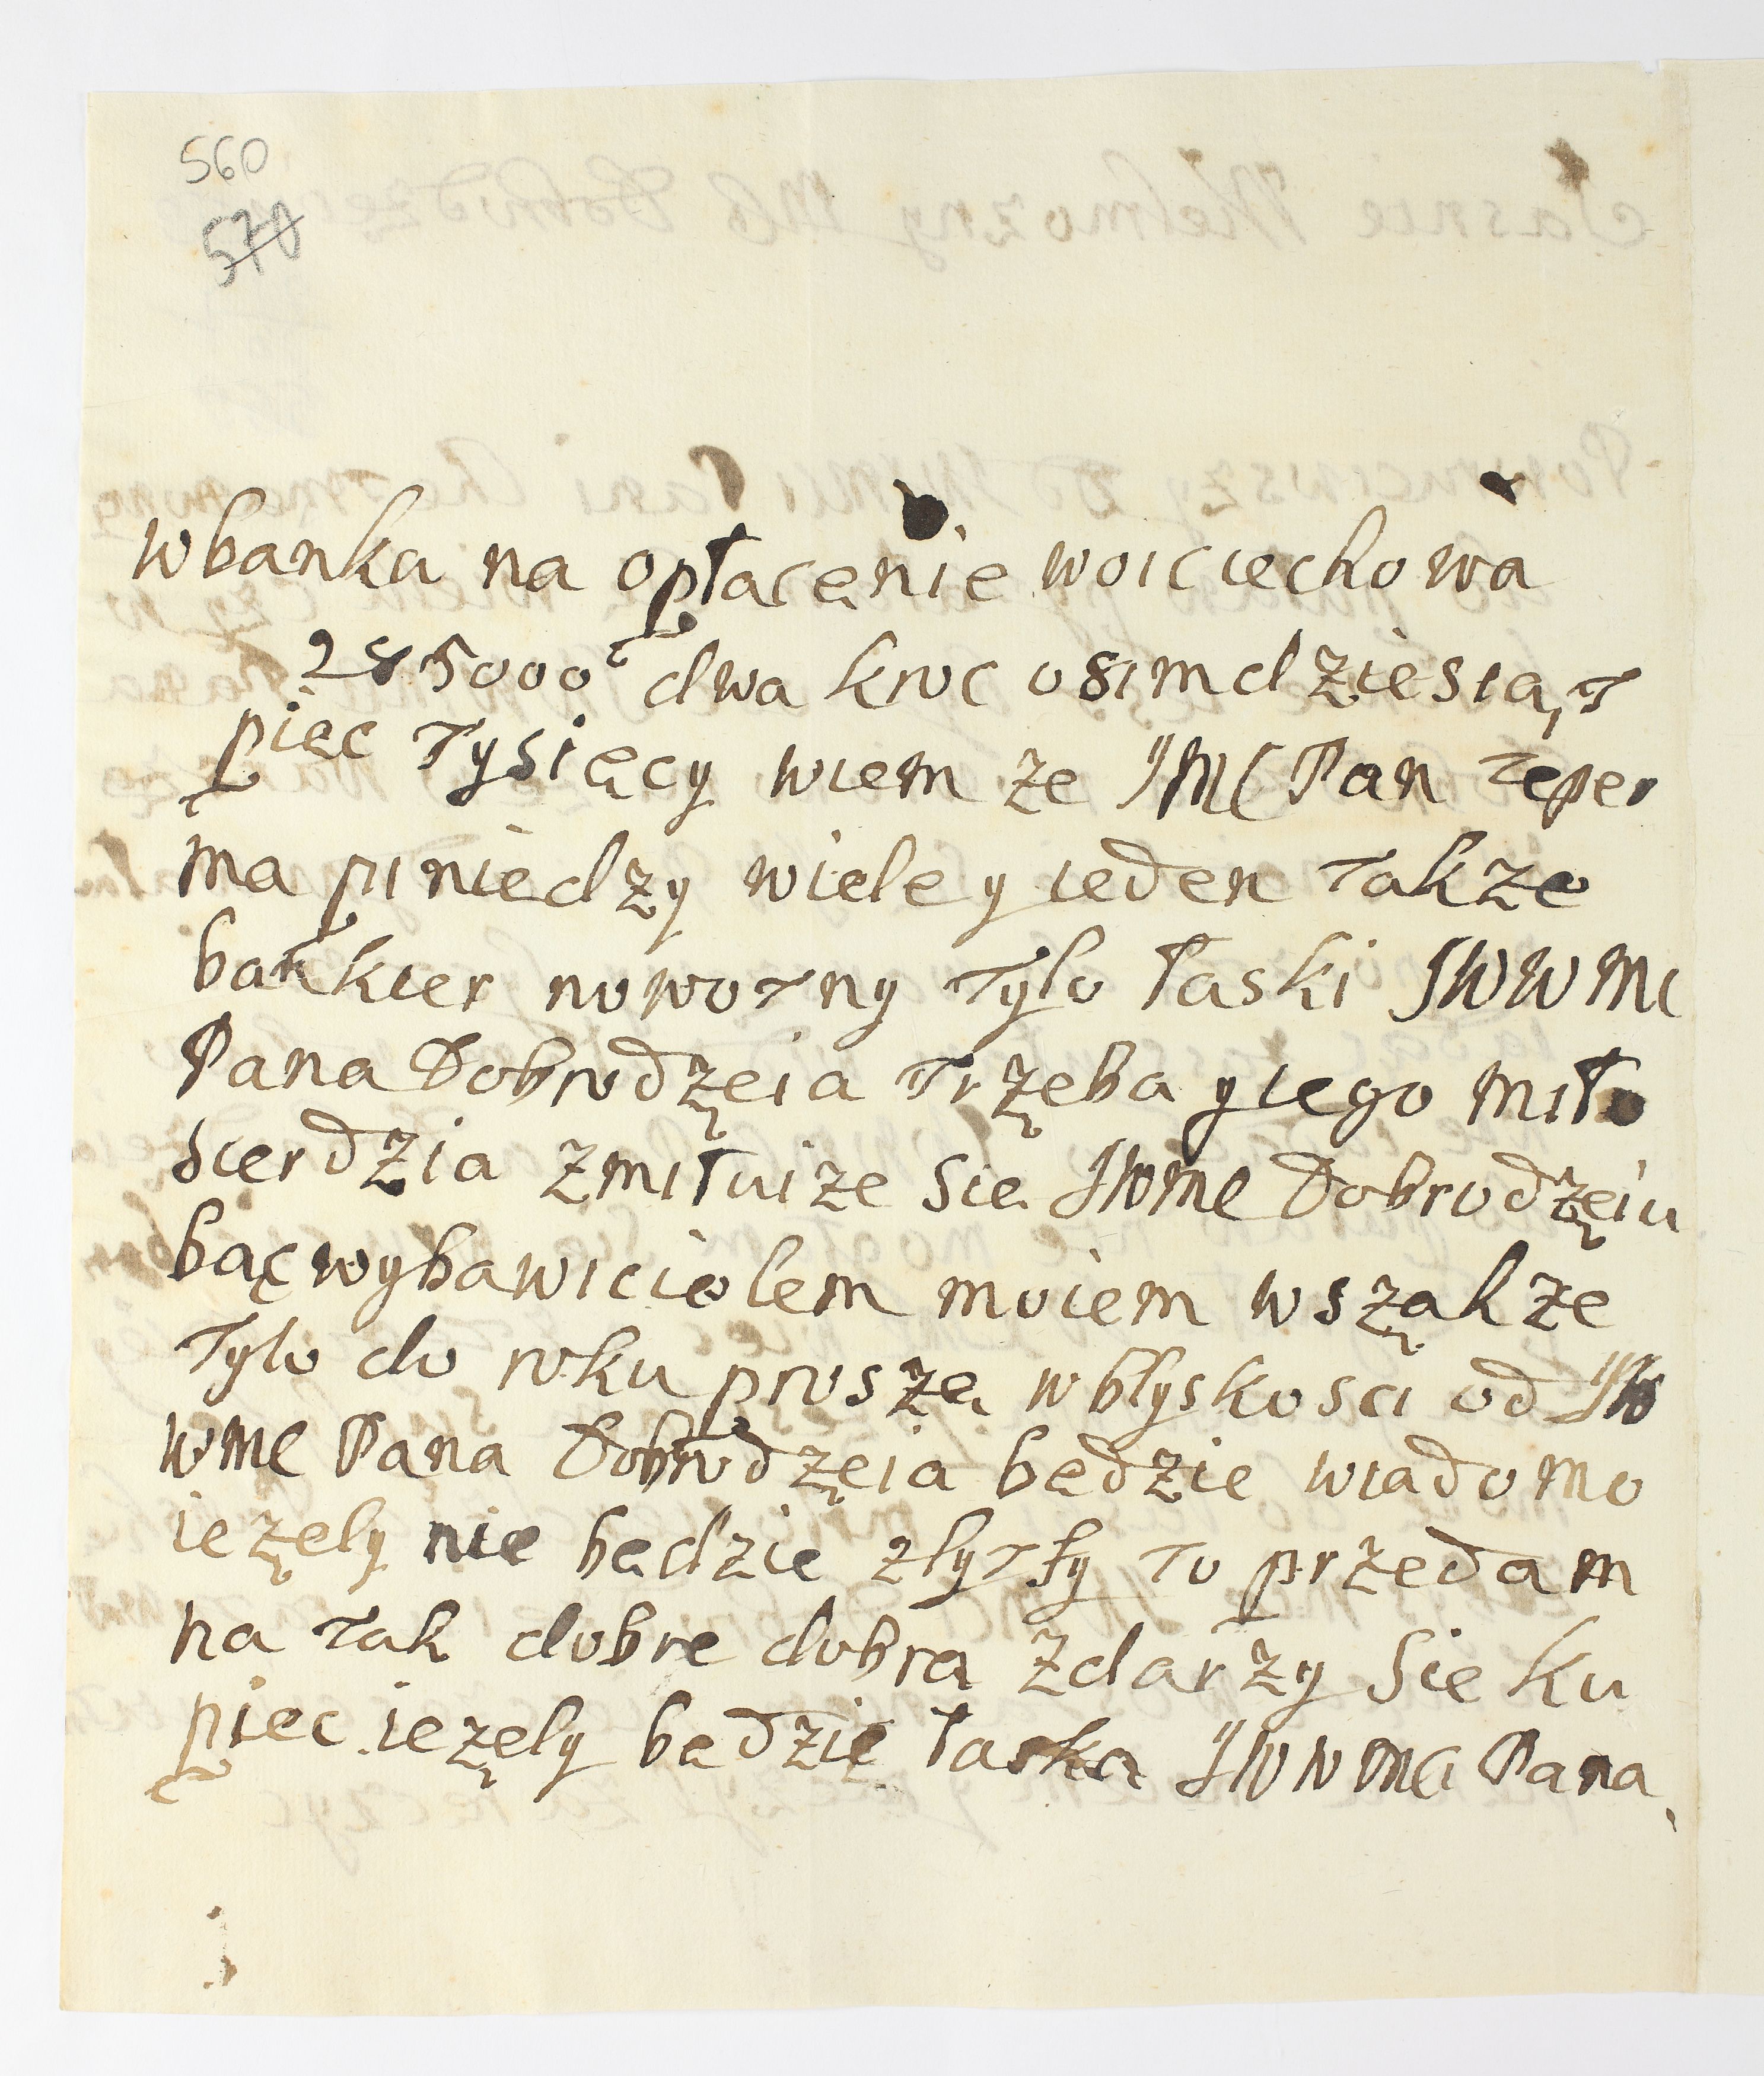 560
570
wbanka na opłacenie woiciechowa
285000 dwa kroc osimdziesiąt
pięc tysięcy wiem ze JMC Pan teper
ma piniedzy wiele y ieden takze
bankier nowotny tylo łaski JWWMC
Pana Dobrodzeia trzeba y iego miło
sierdzia zmiłuize sie JWMC Dobrodzeiu
bąc wybawicielem moiem wszakze
tylo do roku prosze wblyskosci od JW
WMC Pana Dobrodzeia bedzie wiadomo
iezely nie bedzie to przedam
na tak dobre dobra zdarzy sie ku
piec iezely bedzie łaska JWWMC Pana